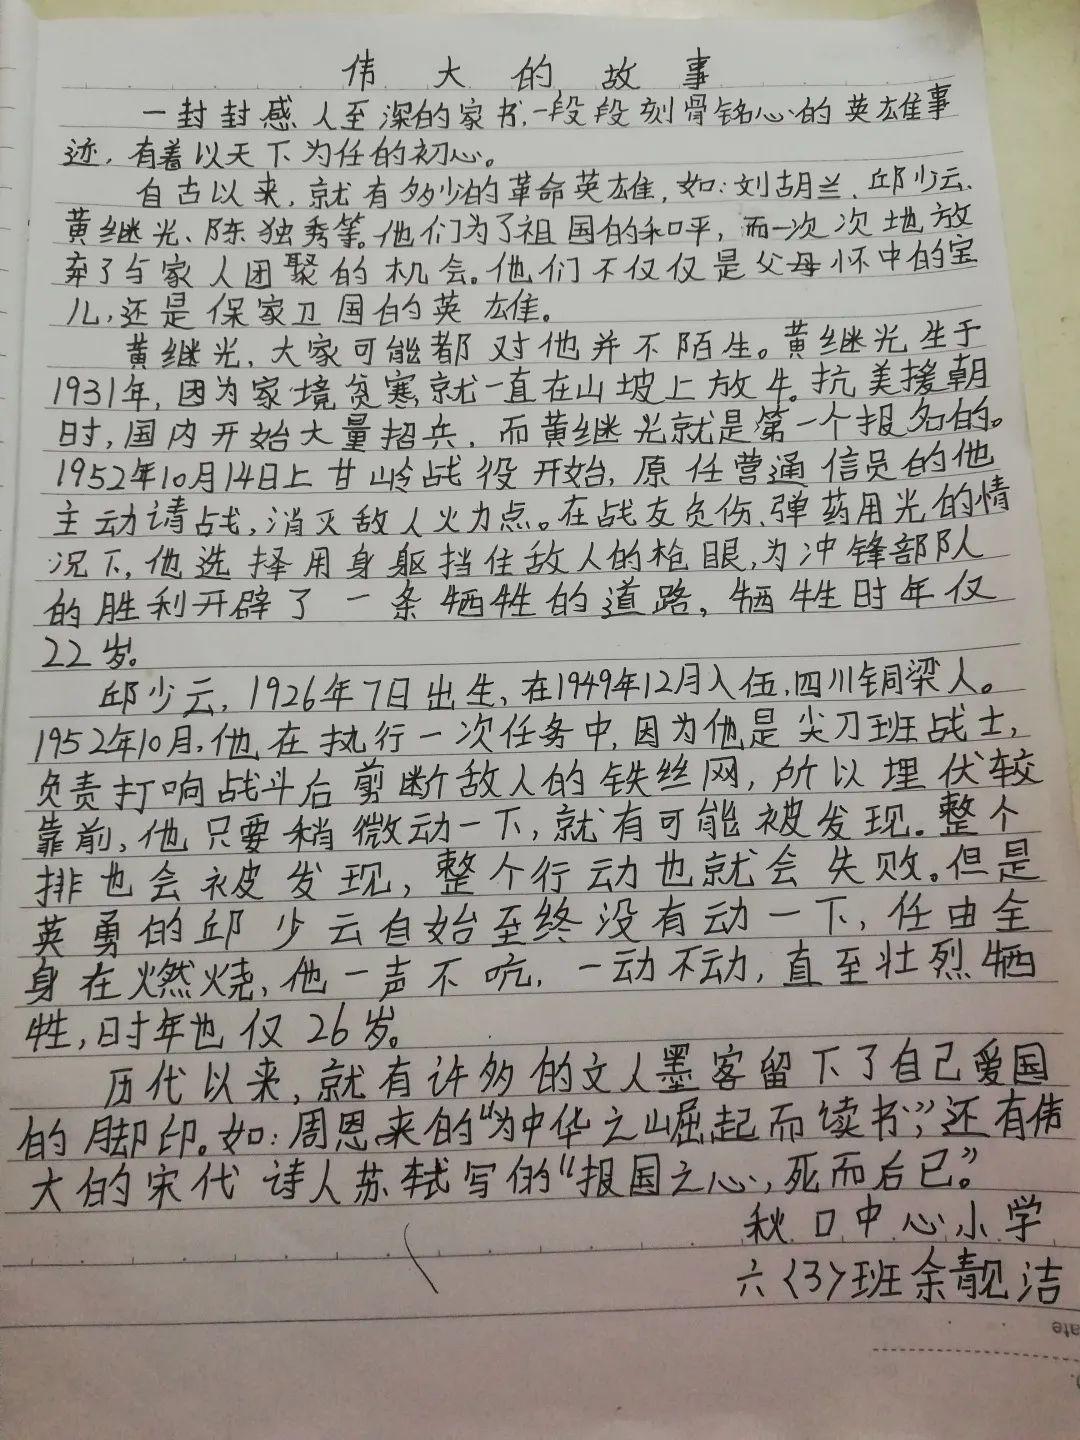 伟大的故事
一封封感人至深的家书,一段段刻骨铭心的英雄事
迹,有着以天下为任的初心。
自古以来,就有多少的革命英雄,如:刘胡兰、邱少云、
黄继光、陈独秀等。他们为了祖国的和平,而一次次地放
弃了与家人团聚的机会。他们不仅仅是父母怀中的宝
儿,还是保家卫国的英雄。
黄继光,大家可能都对他并不陌生。黄继光生于
1931年,因为家境贫寒,就一直在山坡上放牛。抗美援朝
时,国内开始大量招兵,而黄继光就是第一个报名的。
1952年10月14日上甘岭战役开始,原任营通信员的他
主动请战,消灭敌人火力点。在战友负伤、弹药用光的情
况下,他选择用身躯挡住敌人的枪眼,为冲锋部队
的胜利开辟了一条牺牲的道路,牺牲时年仅
22岁。
邱少云,1926年7日出生,在1949年12月入伍,四川铜梁人。
1952年10月,他在执行一次任务中,因为他是尖刀班战士,
负责打响战斗后剪断敌人的铁丝网,所以埋伏较
靠前,他只要稍微动一下,就有可能被发现。整个
排也会被发现,整个行动也就会失败。但是
英勇的邱少云自始至终没有动一下,任由全
身在燃烧,他一声不吭,一动不动,直至壮烈牺
牲,时年也仅26岁。
历代以来,就有许多的文人墨客留下了自己爱国
的脚印。如:周恩来的“为中华之崛起而读书”;还有伟
大的宋代诗人苏轼写的“报国之心,死而后已。”
秋口中心小学
六〈3〉班余靓洁